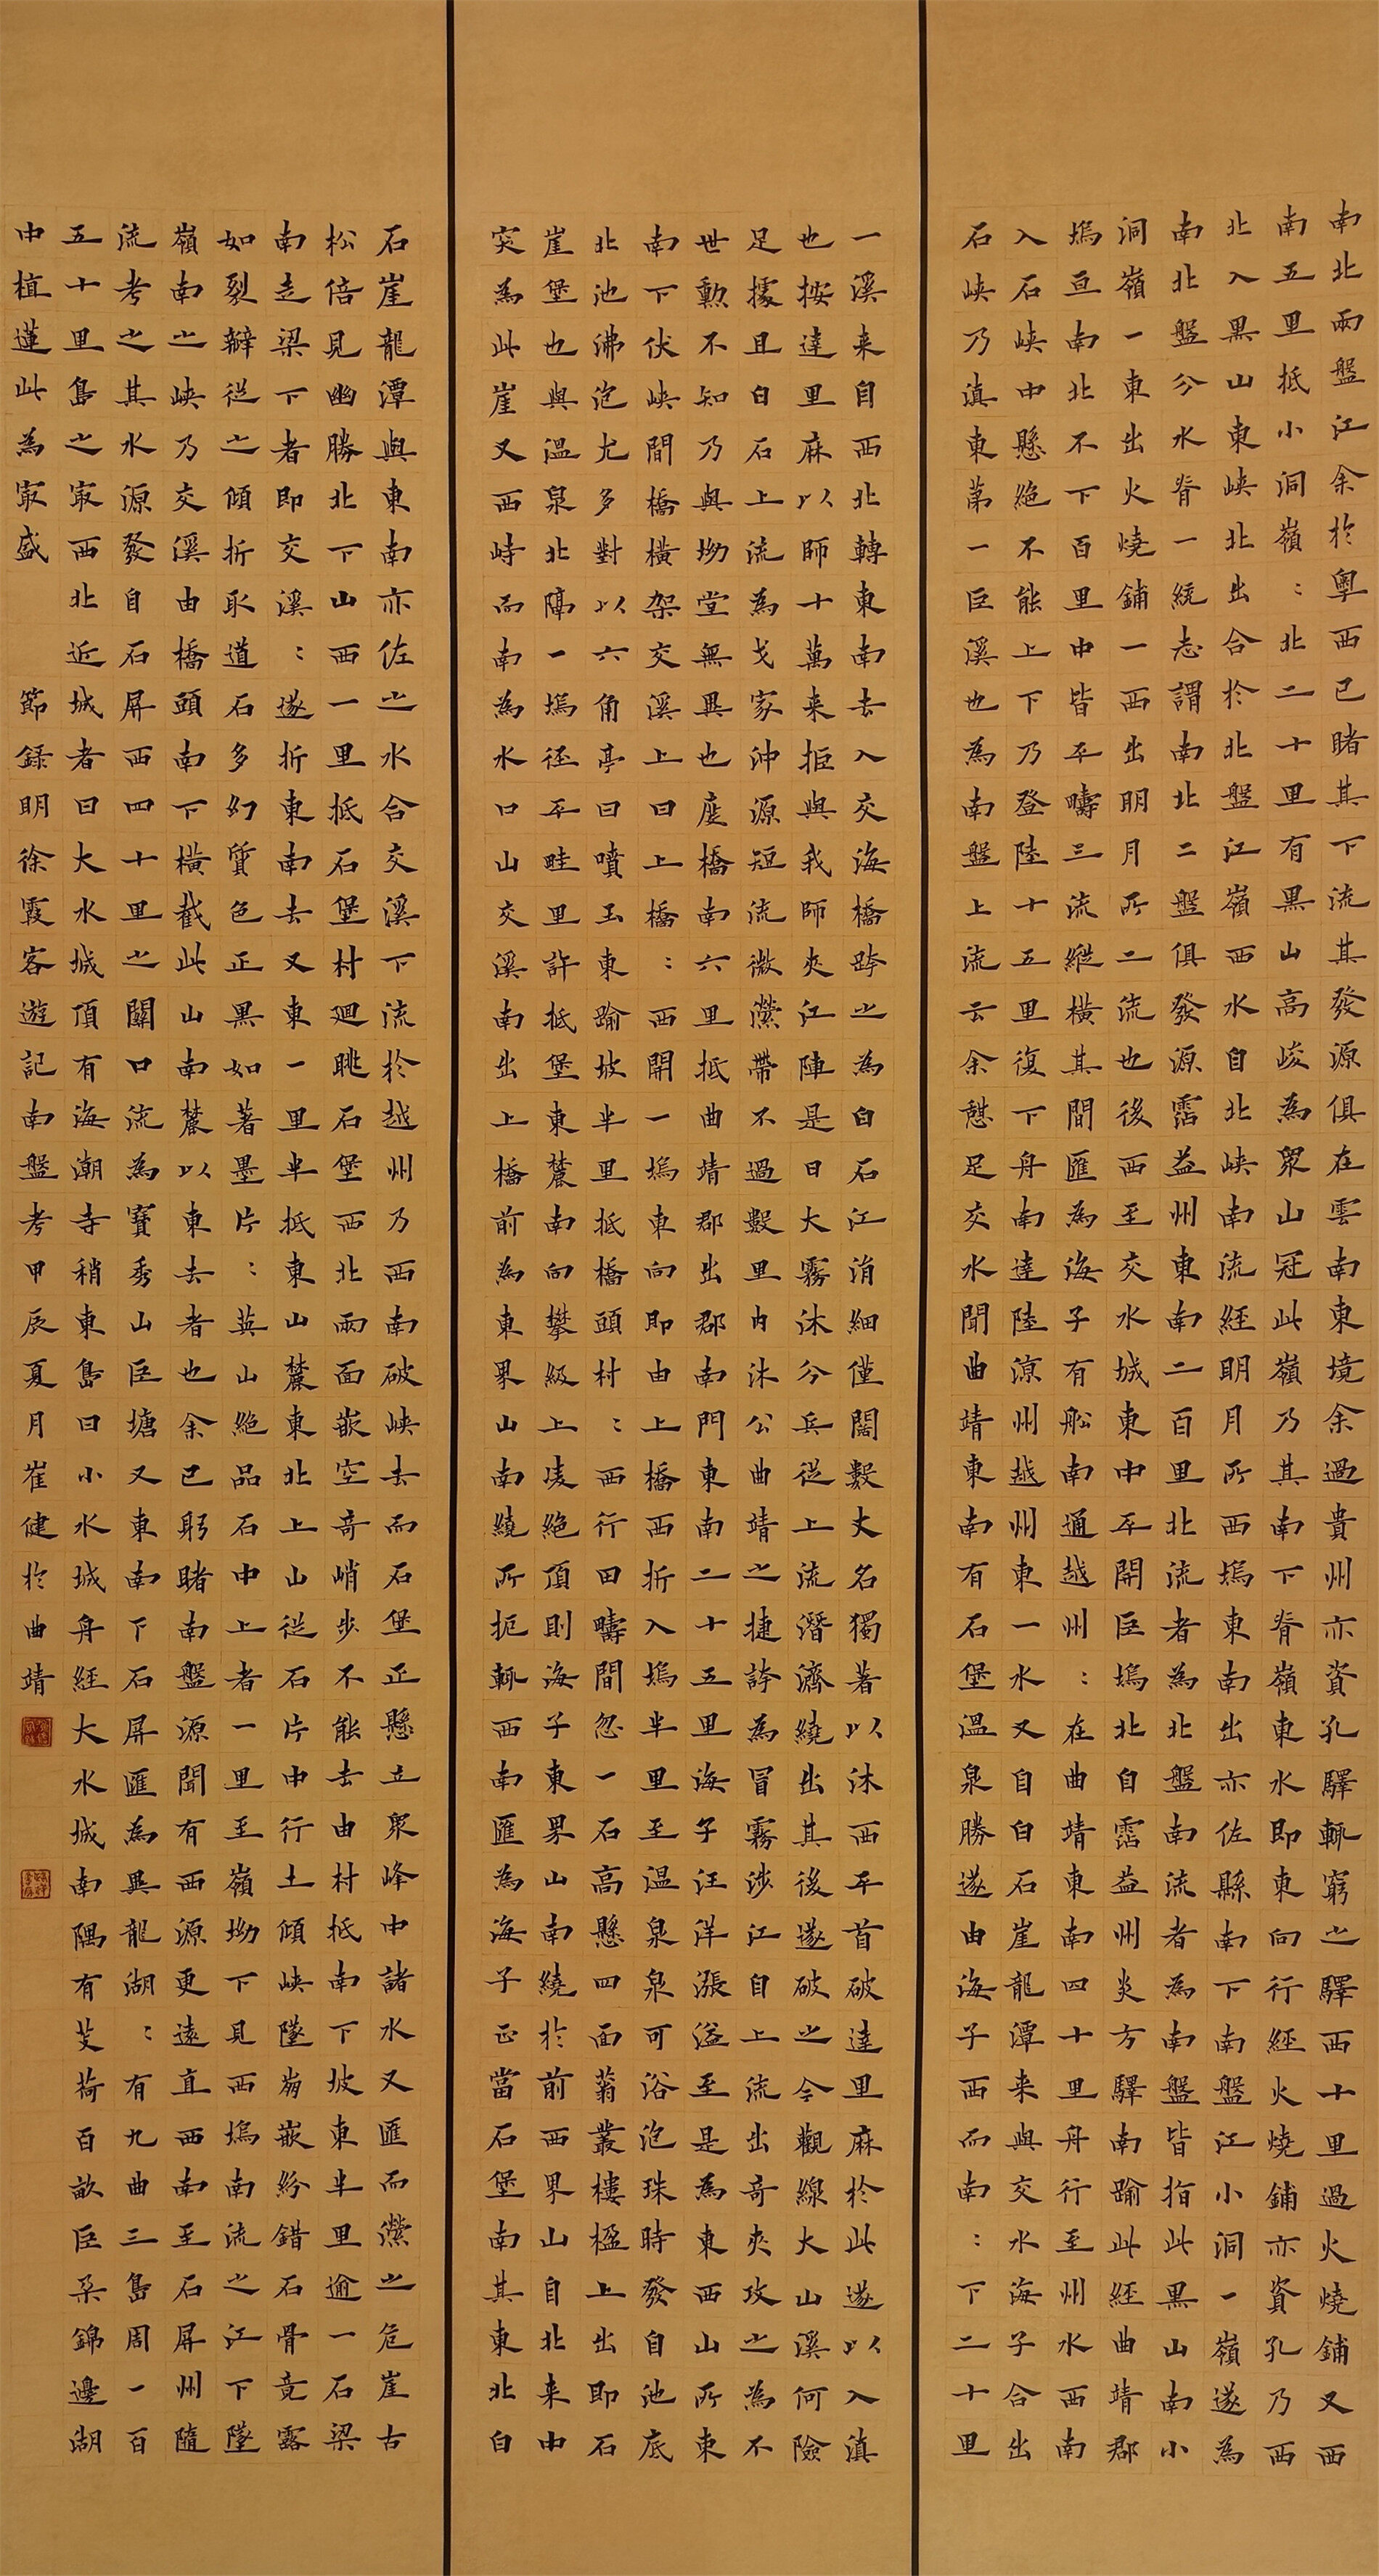 南北兩盤江余於粵西已睹其下流其發源俱在雲南東境余過貴州亦資孔驛輒窮之驛西十里過火燒鋪又西
南五里抵小洞嶺：北二十里有黑山高峻為衆山冠此嶺乃其南下脊嶺東水即東向行經火燒鋪亦資孔乃西
北入黑山東峽北出合於北盤江嶺西水自北峽南流經明月所西塢東南出亦佐縣南下南盤江小洞一嶺遂為
南北盤分水脊一統志謂南北二盤俱發源霑益州東南二百里北流者為北盤南流者為南盤皆指此黑山南小
洞嶺一東出火燒鋪一西出明月所二流也後西至交水城東中平開巨塢北自霑益州炎方驛南踰此經曲靖郡
塢亘南北不下百里中皆平疇三流縱橫其間匯為海子有船南通越州：在曲靖東南四十里舟行至州水西南
入石峽中懸絕不能上下乃登陸十五里復下舟南達陸涼州越州東一水又自白石崖龍潭来與交水海子合出
石峽乃滇東第一巨溪也為南盤上流云余憇足交水聞曲靖東南有石堡溫泉勝遂由海子西而南：下二十里
一溪来自西北轉東南去入交海橋跨之為白石江涓細僅闊數丈名獨著以沐西平首破達里麻於此遂以入滇
也按達里麻以師十萬来拒與我師夾江陣是日大霧沐分兵從上流潛濟繞出其後遂破之今觀線大山溪何險
足據且白石上流為戈家沖源短流微瀠帶不過數里内沐公曲靖之捷誇為冒霧涉江自上流出奇夾攻之為不
世勳不知乃與坳堂無異也度橋南六里抵曲靖郡出郡南門東南二十五里海子汪洋漲溢至是為東西山所束
南下伏峽間橋橫架交溪上曰上橋：西開一塢東向即由上橋西折入塢半里至溫泉泉可浴泡珠時發自池底
北池沸泡尤多對以六角亭曰噴玉東踰坡半里抵橋頭村：西行田疇間忽一石高懸四面蓊叢樓楹上出即石
崖堡也與溫泉北隔一塢徑平畦里許抵堡東麓南向攀級上凌絕頂則海子東界山南繞於前西界山自北来中
突為此崖又西峙而南為水口山交溪南出上橋前為東界山南繞所扼輒西南匯為海子正當石堡南其東北白
石崖龍潭與東南亦佐之水合交溪下流於越州乃西南破峽去而石堡正懸立衆峰中諸水又匯而瀠之危崖古
松倍見幽勝北下山西一里抵石堡村廻眺石堡西北兩面嵌空奇峭步不能去由村抵南下坡東半里逾一石梁
南走梁下者即交溪：遂折東南去又東一里半抵東山麓東北上山從石片中行土傾峽墜崩嵌紛錯石骨竟露
如裂瓣從之傾折取道石多幻質色正黑如著墨片：英山絕品石中上者一里至嶺坳下見西塢南流之江下墜
嶺南之峽乃交溪由橋頭南下橫截此山南麓以東去者也余已躬睹南盤源聞有西源更遠直西南至石屏州隨
流考之其水源發自石屏西四十里之關口流為寶秀山巨塘又東南下石屏匯為異龍湖：有九曲三島周一百
五十里島之冣西北近城者曰大水城頂有海潮寺稍東島曰小水城舟經大水城南隅有芰荷百畝巨朶錦邊湖
中植蓮此為冣盛　節錄明徐霞客遊記南盤考甲辰夏月崔健於曲靖